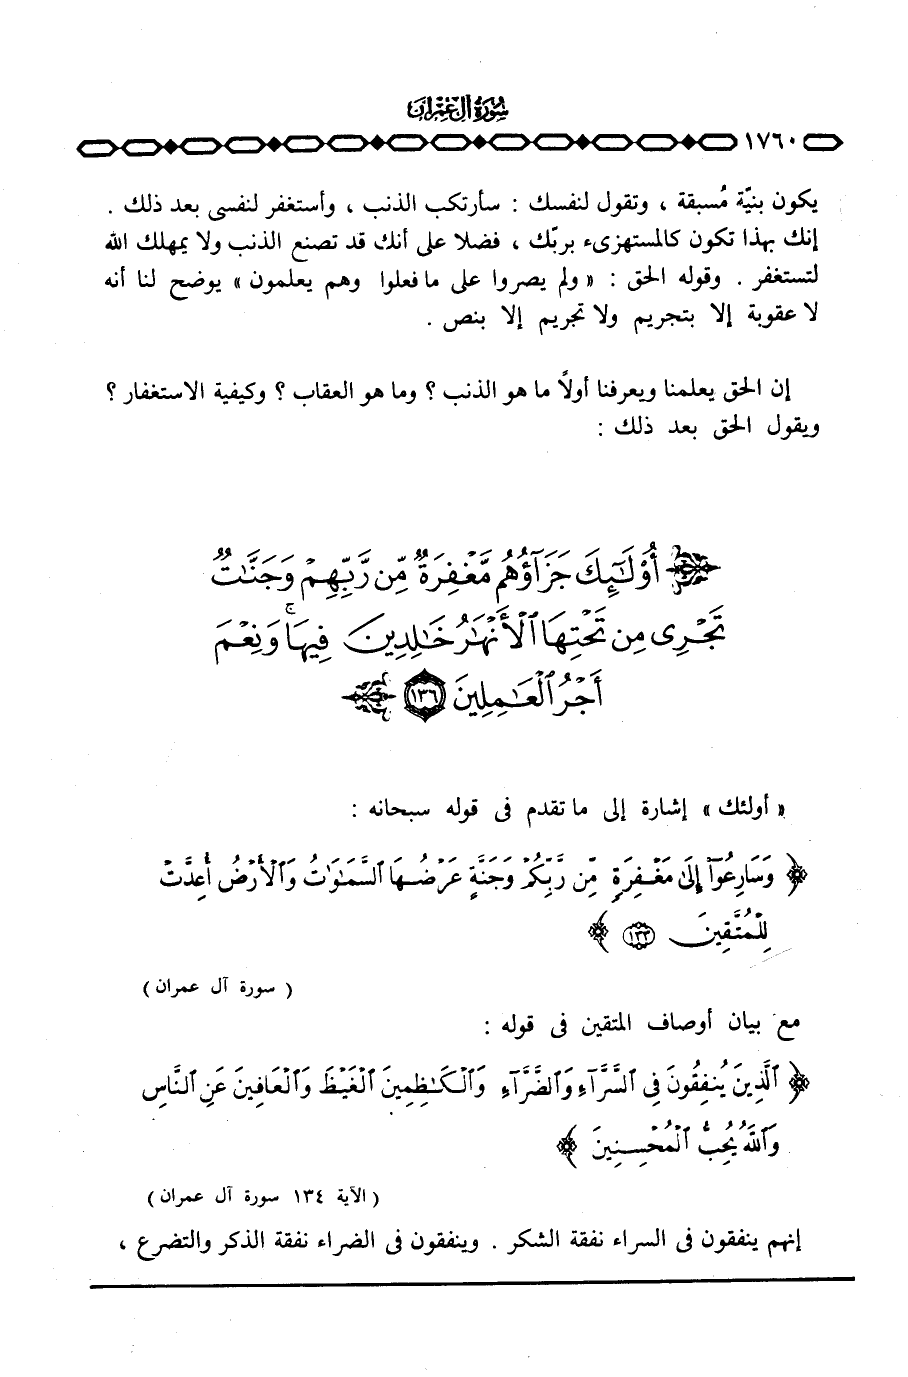 سورة آل عمران
١٧٦٠
يكون بنيّة مُسبقة ، وتقول لنفسك : سأرتكب الذنب ، وأستغفر لنفسى بعد ذلك .
إنك بهذا تكون كالمستهزىء بربّك ، فضلا على أنك قد تصنع الذنب ولا يمهلك الله
لتستغفر . وقوله الحق : « ولم يصروا على ما فعلوا وهم يعلمون » يوضح لنا أنه
لا عقوبة إلا بتجريم ولا تجريم إلا بنص .
إن الحق يعلمنا ويعرفنا أولاً ما هو الذنب ؟ وما هو العقاب ؟ وكيفية الاستغفار ؟
ويقول الحق بعد ذلك :
أُوْلَٰٓئِكَ جَزَآؤُهُم مَّغْفِرَةٌ مِّن رَّبِّهِمْ وَجَنَّٰتٌ
تَجْرِى مِن تَحْتِهَا ٱلْأَنْهَٰرُ خَٰلِدِينَ فِيهَا ۚ وَنِعْمَ
أَجْرُ ٱلْعَٰمِلِينَ ١٣٦
« أولئك » إشارة إلى ما تقدم فى قوله سبحانه :
﴿ وَسَارِعُوٓا۟ إِلَىٰ مَغْفِرَةٍ مِّن رَّبِّكُمْ وَجَنَّةٍ عَرْضُهَا ٱلسَّمَٰوَٰتُ وَٱلْأَرْضُ أُعِدَّتْ
لِلْمُتَّقِينَ ١٣٣ ﴾
( سورة آل عمران )
مع بيان أوصاف المتقين فى قوله :
﴿ ٱلَّذِينَ يُنفِقُونَ فِى ٱلسَّرَّآءِ وَٱلضَّرَّآءِ وَٱلْكَٰظِمِينَ ٱلْغَيْظَ وَٱلْعَافِينَ عَنِ ٱلنَّاسِ
وَٱللَّهُ يُحِبُّ ٱلْمُحْسِنِينَ ﴾
( الآية ١٣٤ سورة آل عمران )
إنهم ينفقون فى السراء نفقة الشكر . وينفقون فى الضراء نفقة الذكر والتضرع ،